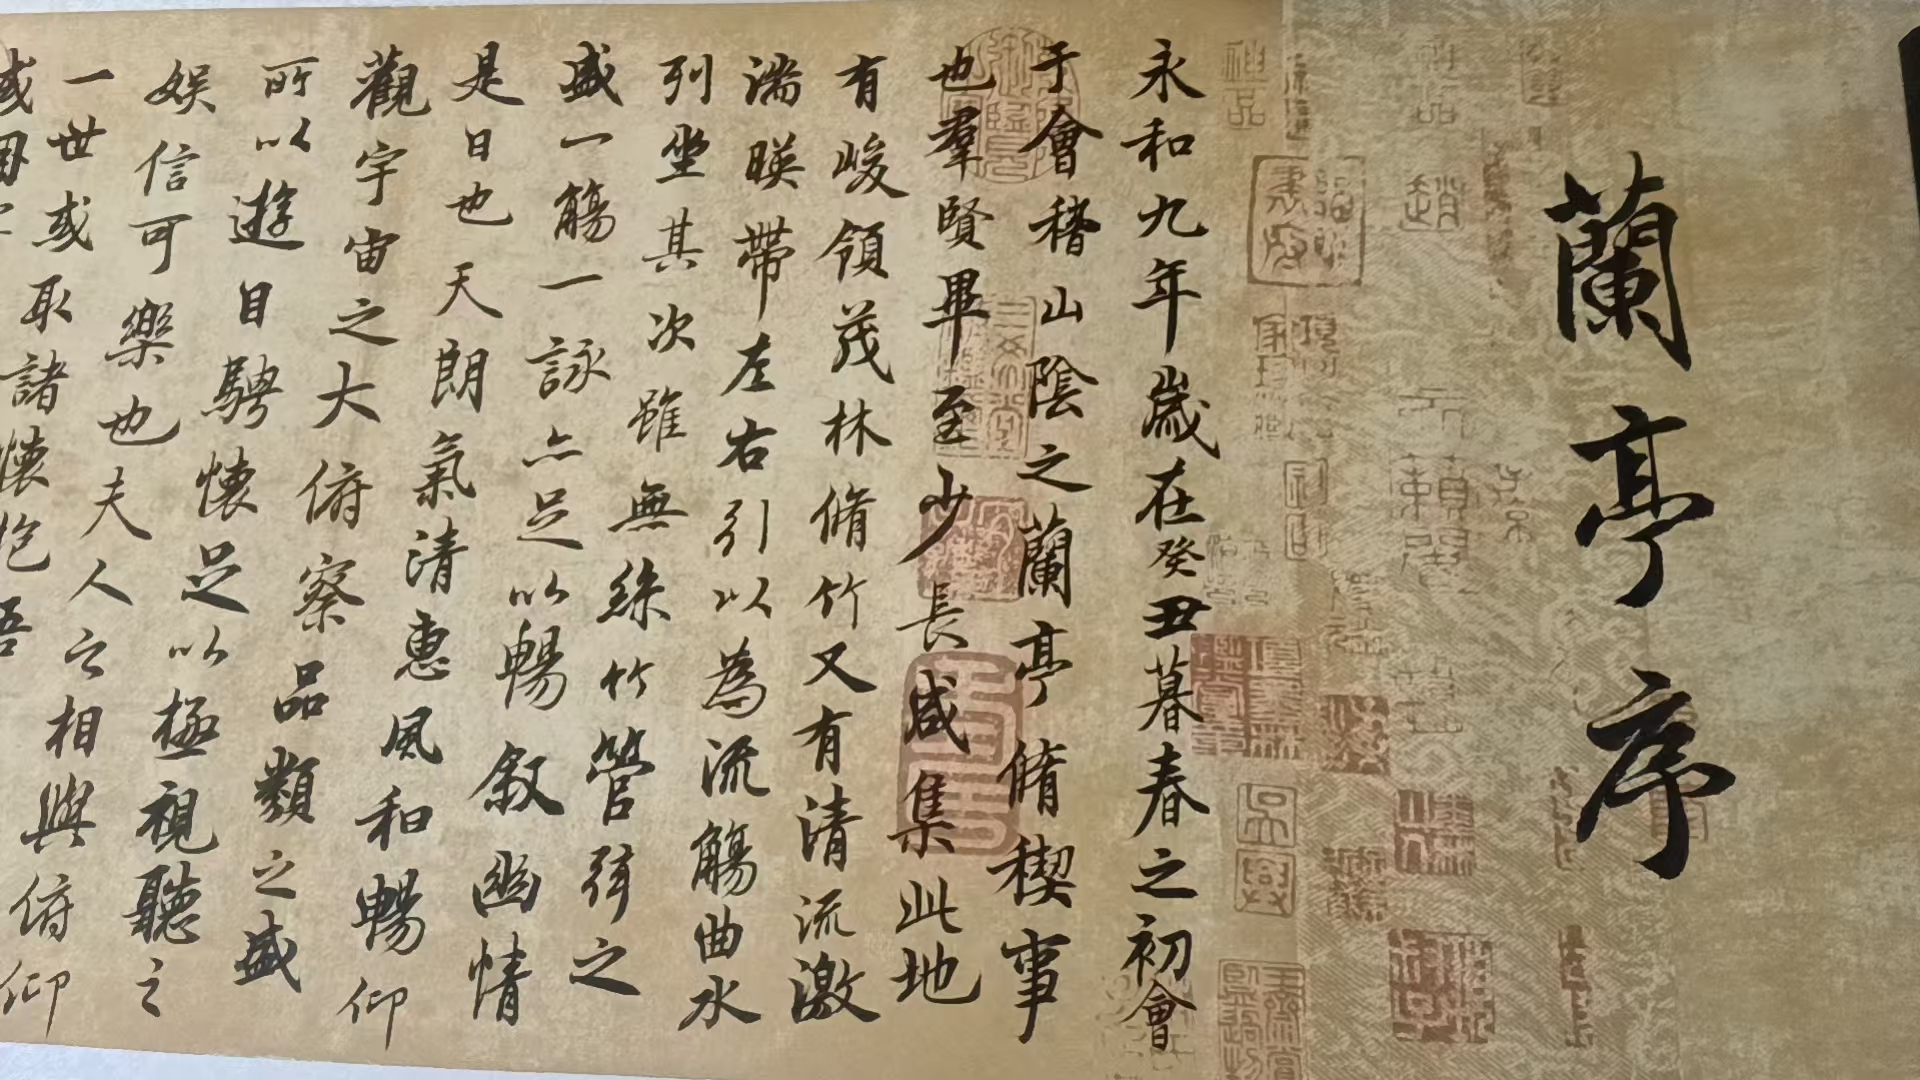 蘭亭序
永和九年歲在癸丑暮春之初會
于會稽山陰之蘭亭脩稧事
也羣賢畢至少長咸集此地
有峻領茂林脩竹又有清流激
湍暎帶左右引以為流觴曲水
列坐其次雖無絲竹管弦之
盛一觴一詠亦足以暢敘幽情
是日也天朗氣清惠風和暢仰
觀宇宙之大俯察品類之盛
所以遊目騁懷足以極視聽之
娛信可樂也夫人之相與俯仰
一世或取諸懷抱悟
或因